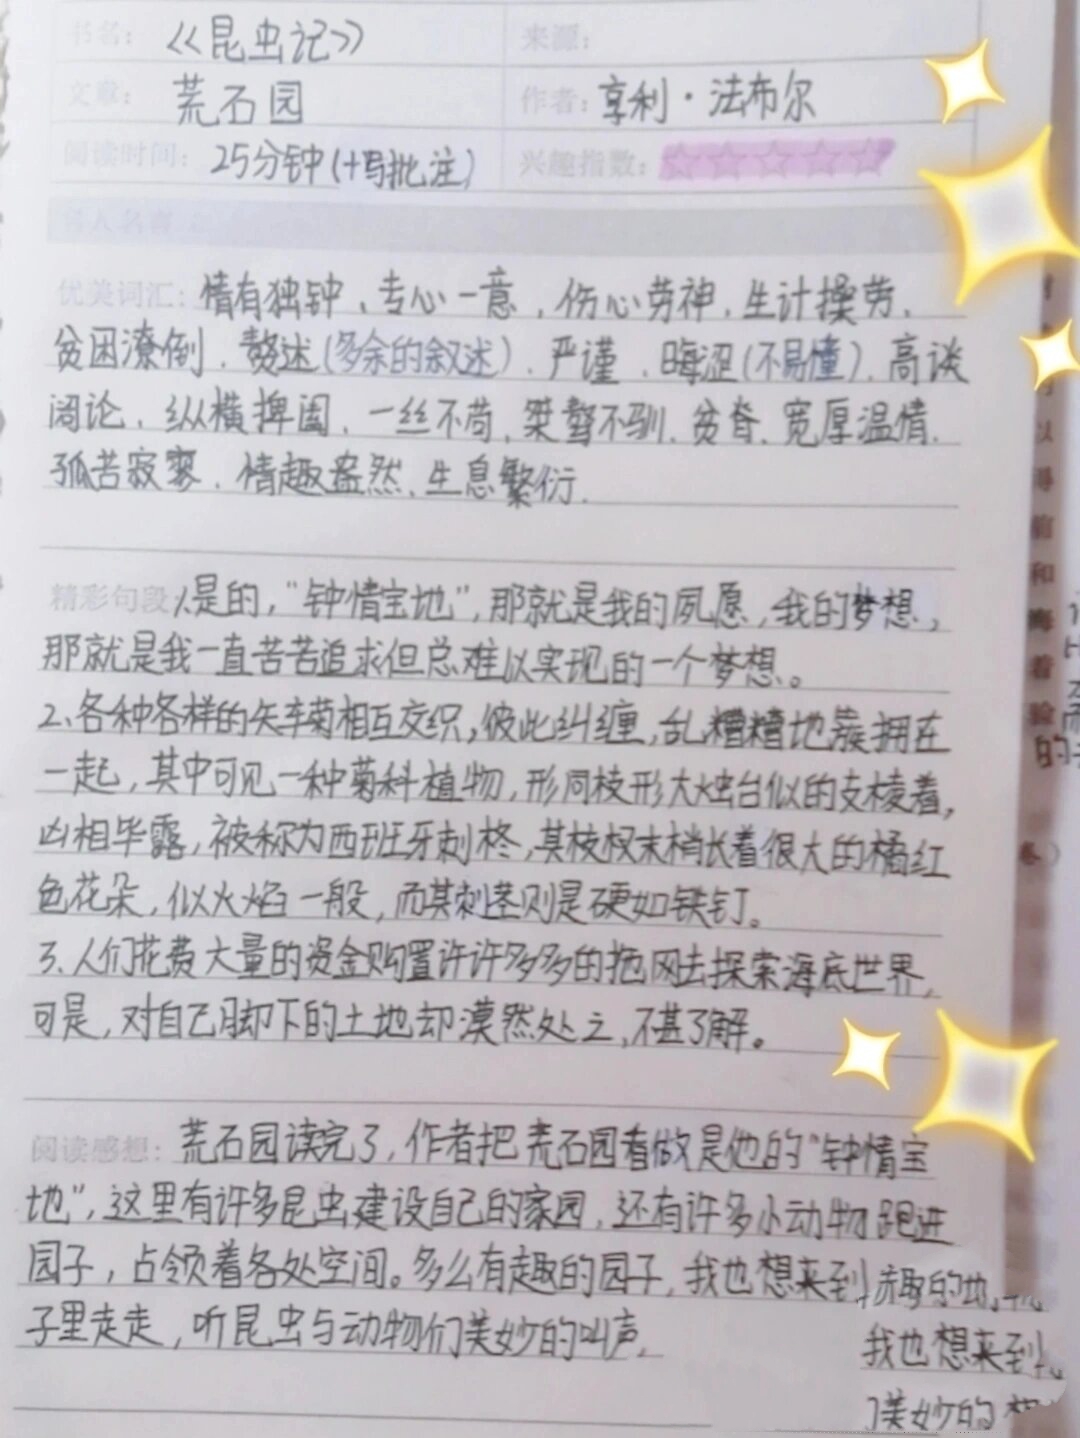 书名：《昆虫记》 来源：
文章：荒石园 作者：享利·法布尔
阅读时间：25分钟(+写批注) 兴趣指数：☆☆☆☆☆
优美词汇：情有独钟、专心一意、伤心劳神、生计操劳、
贫困潦倒、赘述(多余的叙述)、严谨、晦涩(不易懂)、高谈
阔论、纵横捭阖、一丝不苟、桀骜不驯、贫脊、宽厚温情、
孤苦寂寥、情趣盎然、生息繁衍、
精彩句段：1、是的，"钟情宝地"，那就是我的夙愿，我的梦想，
那就是我一直苦苦追求但总难以实现的一个梦想。
2、各种各样的矢车菊相互交织，彼此纠缠，乱糟糟地簇拥在
一起，其中可见一种菊科植物，形同枝形大烛台似的支棱着，
凶相毕露，被称为西班牙刺柊，其枝杈末梢长着很大的橘红
色花朵，似火焰一般，而其刺茎则是硬如铁钉。
3、人们花费大量的资金购置许许多多的拖网去探索海底世界，
可是，对自己脚下的土地却漠然处之，不甚了解。
阅读感想：荒石园读完了，作者把荒石园看做是他的"钟情宝
地"，这里有许多昆虫建设自己的家园，还有许多小动物跑进
园子，占领着各处空间。多么有趣的园子，我也想来到
子里走走，听昆虫与动物们美妙的叫声，
趣的地
我也想来到
美妙的
以
寻
前
和
每
着
验
的